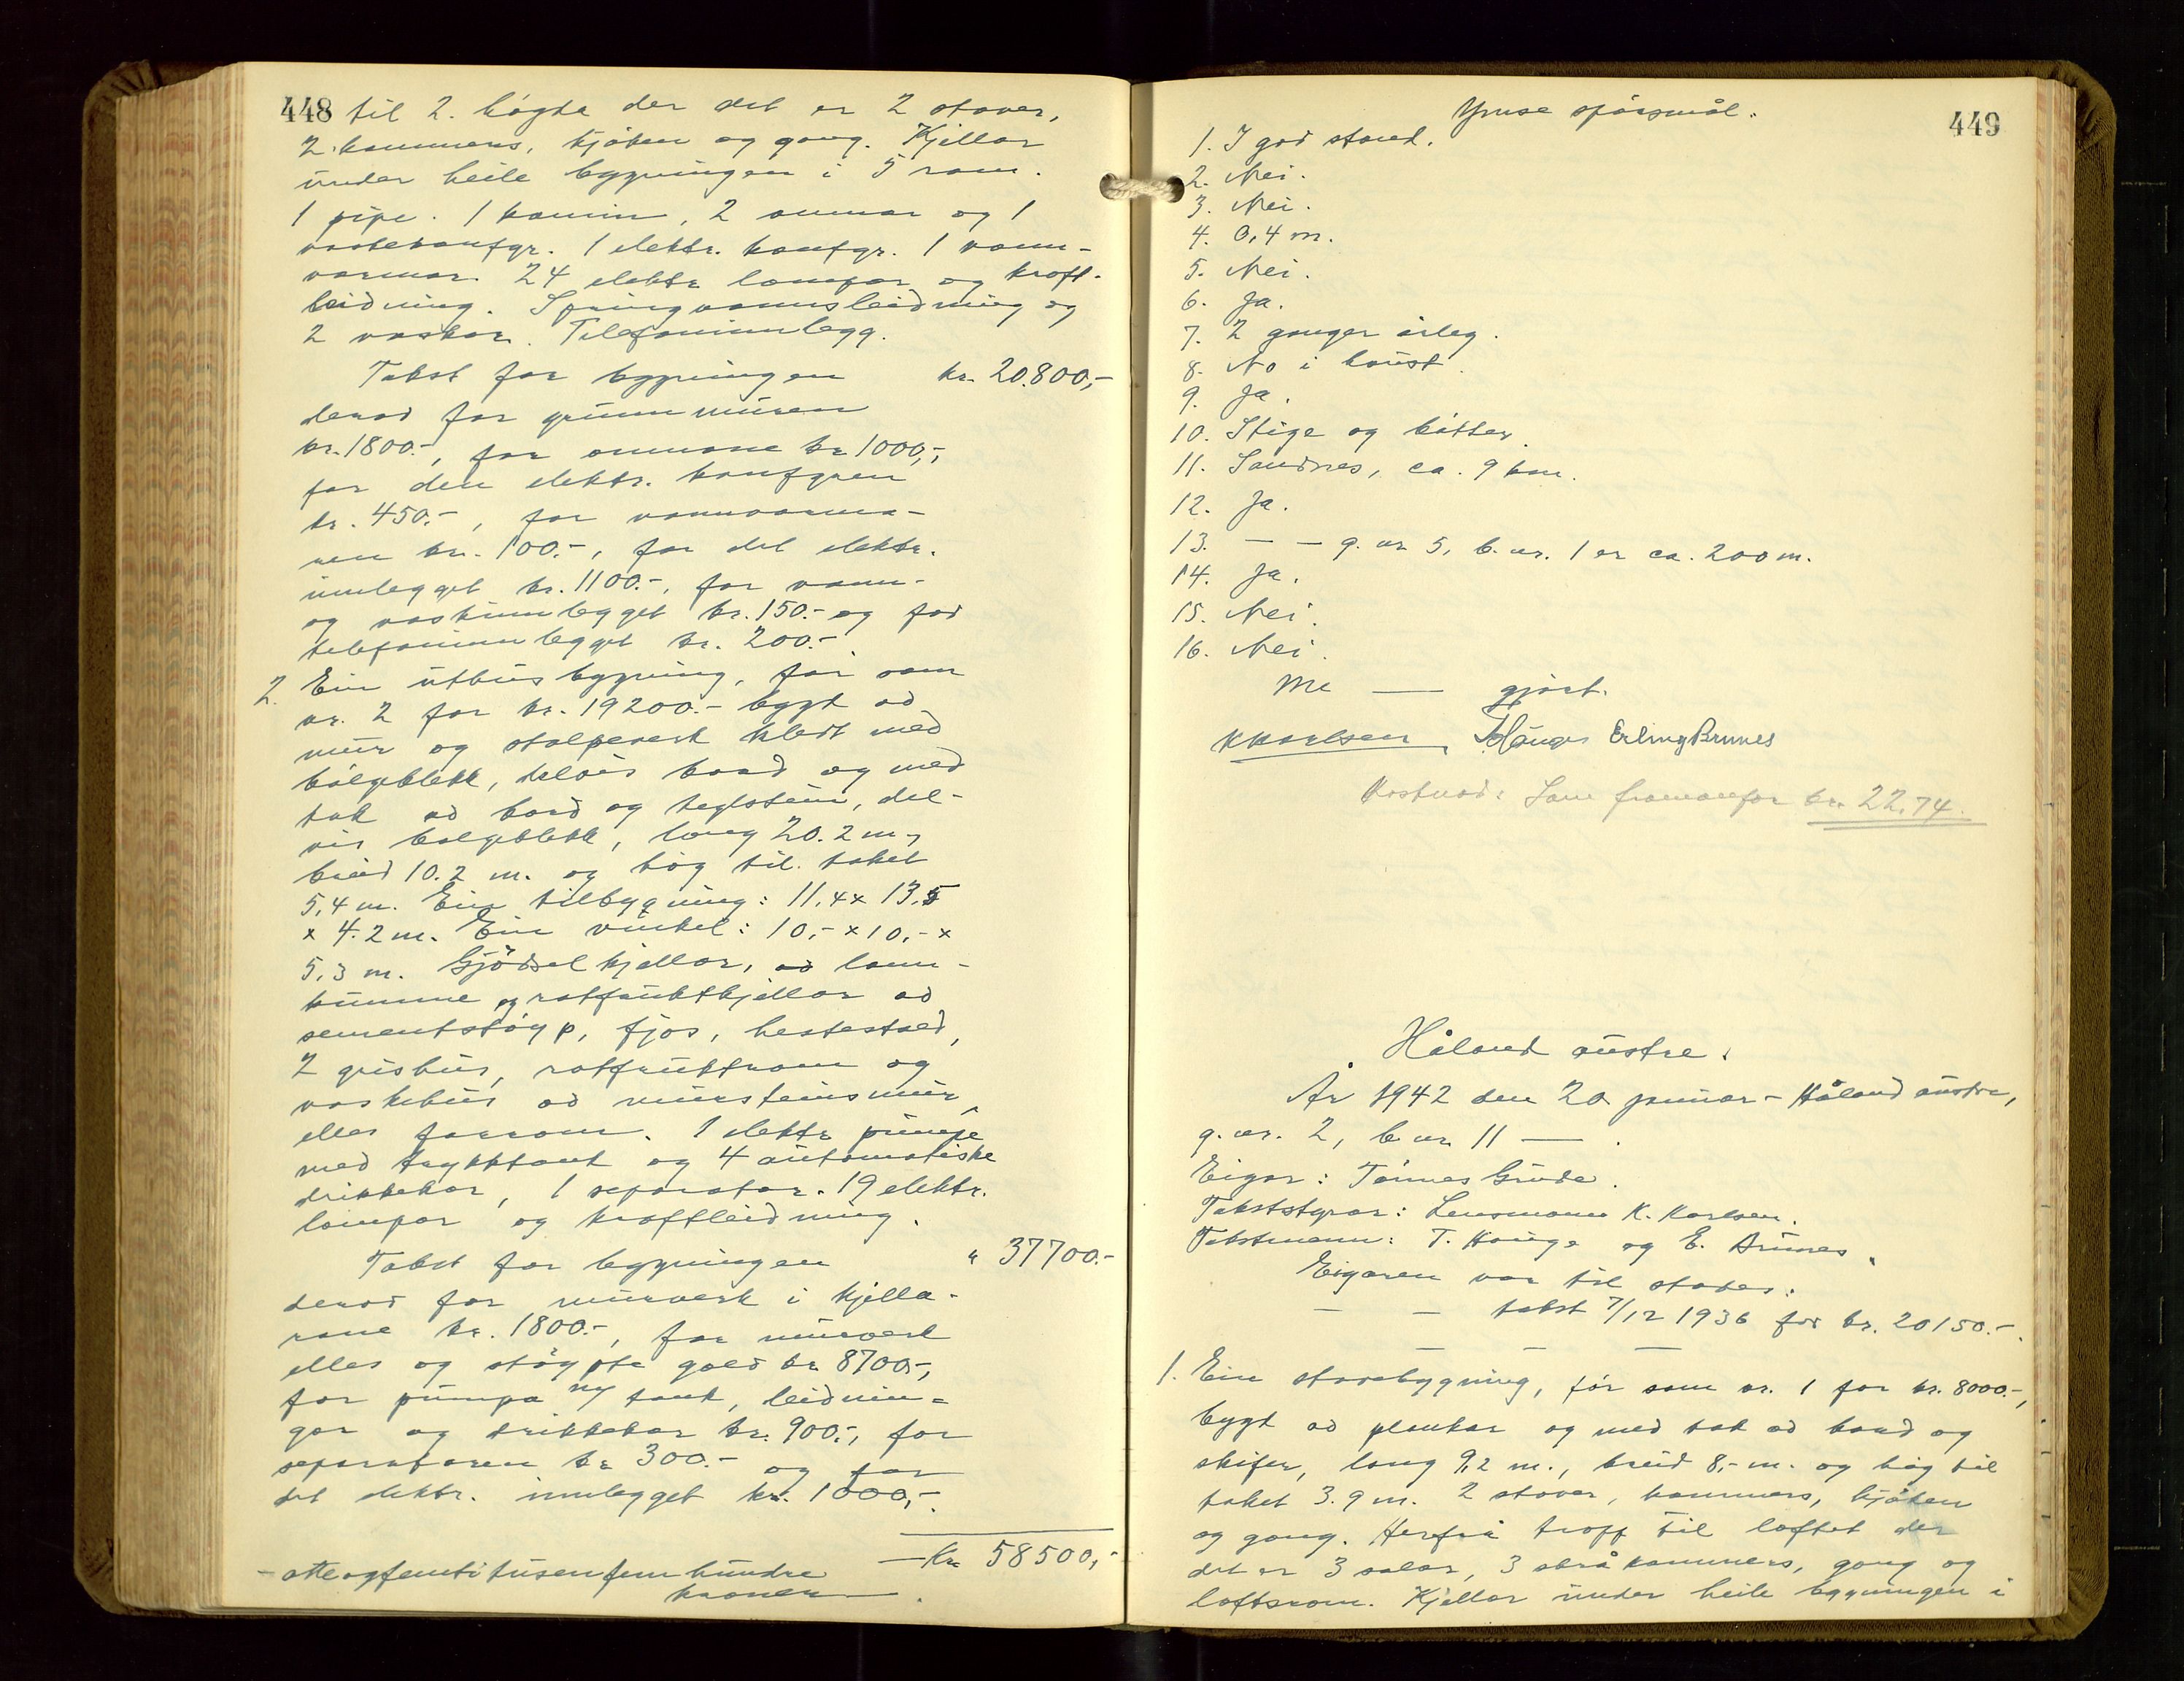 448
til 2. høgda der det er 2 stover,
2 kammers, kjøken og gang. Kjellar
under heile bygningen i 5 rom.
1 pipe. 1 kamin, 2 omnar og 1
vaskekomfyr. 1 elektr. komfyr. 1 vann-
varmar. 24 elektr lampar og kraft-
leidning. Springvannsleidning og
2 vaskar. Telefoninnlegg.
Takst for bygningen kr. 20.800,-
derav for grunnmuren
kr. 1800.-, for omnane kr 1000,-,
for den elektr. komfyren
kr. 450.-, for vannvarma-
ren kr. 100.-, for det elektr.
innlegget kr. 1100.-, for vann-
og vaskinnlegget kr. 150.- og for
telefoninnlegget kr. 200.-
2. Ein uthusbygning, før som
nr. 2 for kr. 19200.- bygt av
mur og stolpeverk kledt med
bølgeblekk, delvis bord og med
tak av bord og teglstein, del-
vis bølgeblekk, lang 20.2 m,
breid 10.2 m. og høg til taket
5,4 m. Ein tilbygning: 11,4 x 13,5
x 4.2 m. Ein vinkel: 10,- x 10,- x
5,3 m. Gjødselkjellar, av lann-
kumme og rotfruktkjellar av
sementstøyp, fjos, hestestad,
2 grishus, rotfruktrom og
vaskehus av mursteinsmur,
elles forrom. 1 elektr pumpe
med trykktank og 4 automatiske
drikkekar, 1 separator. 19 elektr.
lampar og kraftleidning.
Takst for bygningen " 37700.-
derav for murverk i kjella-
rane kr. 1800.-, for murverk
elles og støypte golv kr 8700,-,
for pumpa m/ tank, leidnin-
gar og drikkekar kr. 900.-, for
separatoren kr 300.- og for
det elektr. innlegget kr. 1000,-.
— Kr 58500,-
- åtteogfemti tusen fem hundre
kroner —.
449
Ymse spørsmål.
1. I god stand.
2. Nei.
3. Nei.
4. 0,4 m.
5. Nei.
6. Ja.
7. 2 ganger årleg.
8. No i haust.
9. Ja.
10. Stige og bøtter.
11. Sandnes, ca. 9 km.
12. Ja.
13. — — g. nr 5, b. nr. 1 er ca. 200 m.
14. Ja.
15. Nei.
16. Nei.
Me — gjort.
K Karlsen, T Hauge Erling Brunes
Kostnad: Som framanfor kr. 22,74.
Håland austre.
År 1942 den 20 januar - Håland austre,
g. nr. 2, b. nr 11 — .
Eigar: Tønnes Grude.
Takststyrar: Lensmann K. Karlsen.
Takstmenn: T. Hauge og E. Brunes.
Eigaren var til stades.
— — takst 7/12 1936 for kr. 20150.-.
— — —
1. Ein stovebygning, før som nr. 1 for kr. 8000.-,
bygt av plankar og med tak av bord og
skifer, lang 9,2 m., breid 8,- m. og høg til
taket 3.9 m. 2 stover, kammers, kjøken
og gang. Herfrå tropp til loftet der
det er 3 salar, 3 skråkammers, gang og
loftsrom. Kjellar under heile bygningen i